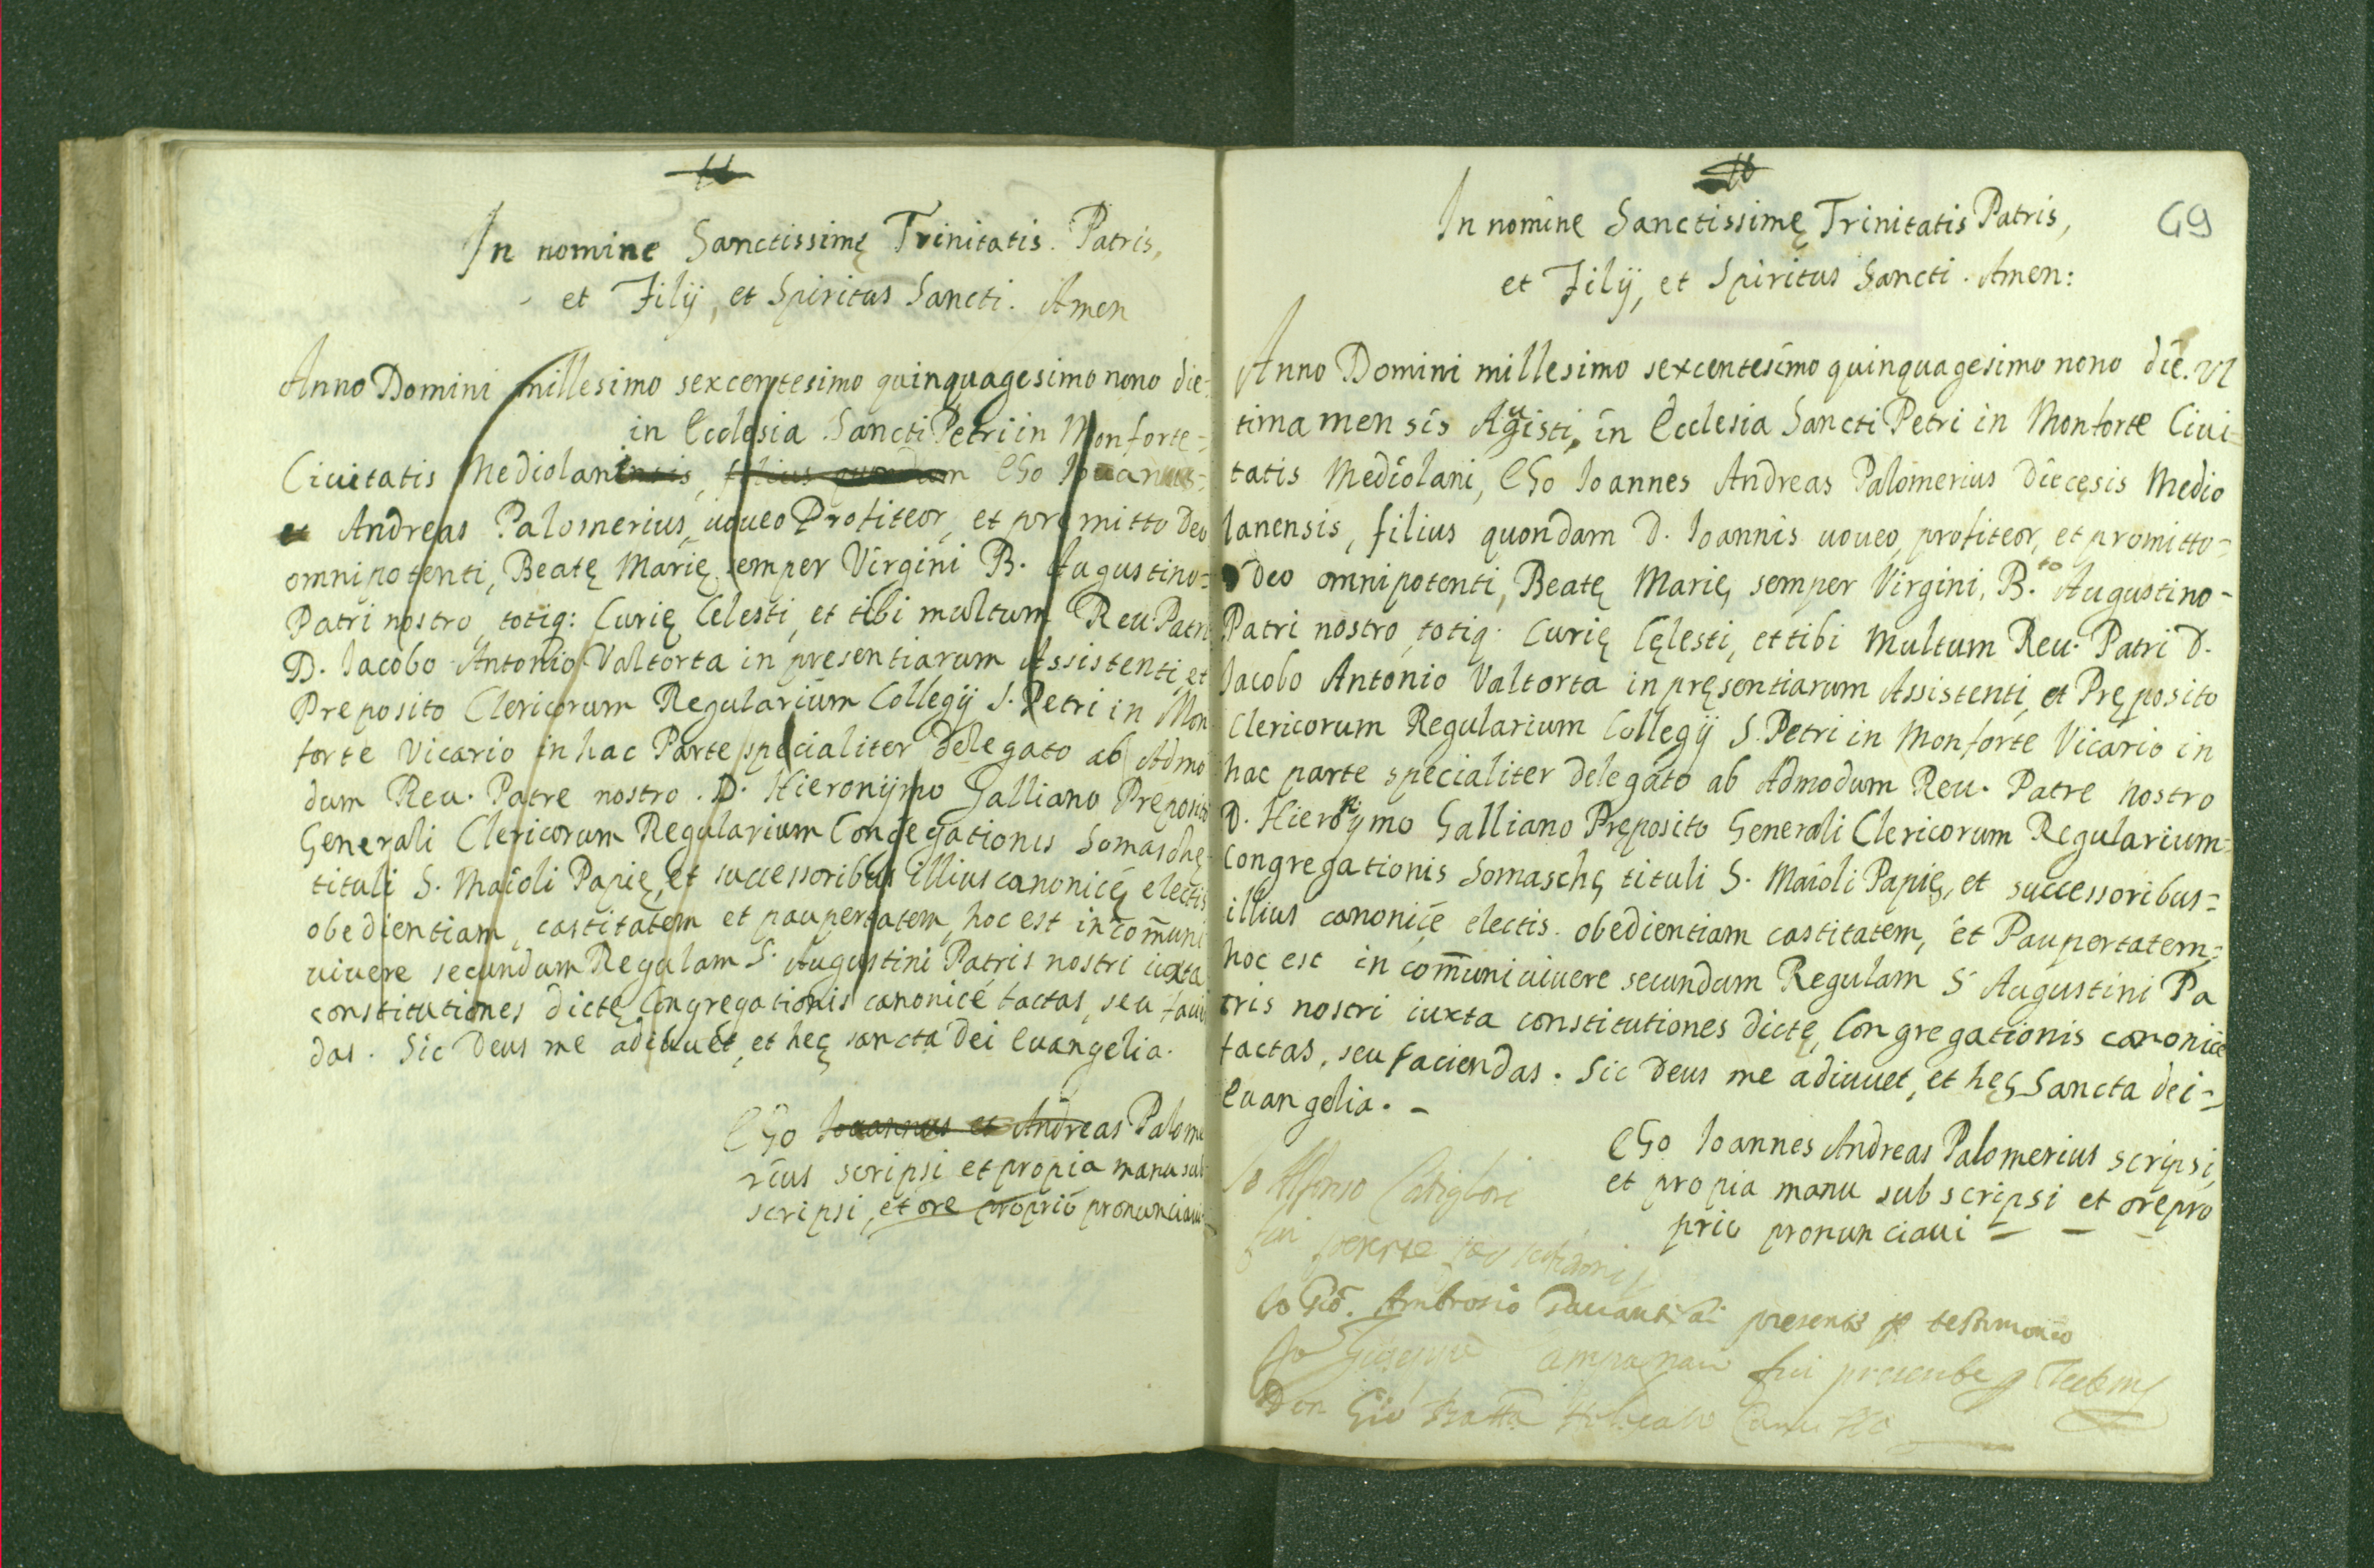 In nomine Sanctissimę Trinitatis. Patris,
et Filij, et Spiritus Sancti. Amen
Anno Domini millesimo sexcentesimo quinquagesimo nono die
in Ecclesia Sancti Petri in Monforte=
Civitatis Mediolaniensis, filius quondam Ego Iouannes=
et Andreas Palomerius, uoueo Profiteor, et promitto Deo
omnipotenti, Beatę Marię semper Virgini B. Augustino=
Patri nostro, totiq: Curię Celesti, et tibi multum Reu. Patri
D. Iacobo Antonio Valtorta in presentiarum Assistenti, et
Preposito Clericorum Regularium Collegij S. Petri in Mon
forte Vicario in hac Parte specialiter delegato ab Admo
dum Reu. Patre nostro. D. Hieronijmo Galliano Preposito
Generali Clericorum Regularium Congegationis Somaschę
tituli S. Maioli Papię, et successoribus illius canonicę electis
obedientiam, castitatem et paupertatem, hoc est in com̄uni
uiuere secundum Regulam S. Augustini Patris nostri iuxta
constitutiones dictę Congregationis canonicé factas, seu facien
das. Sic Deus me adiuuet, et hęc sancta Dei Euangelia.
Ego Iouannes et Andreas Palome
rius scripsi et propia manu sub
scripsi, et ore proprio pronunciaui
49
In nomine Sanctissimę Trinitatis Patris,
et Filij, et Spiritus Sancti. Amen:
Anno Domini millesimo sexcentesimo quinquagesimo nono die. Vl
tima mensis Augisti, in Ecclesia Sancti Petri in Monforte Ciui=
tatis Mediolani, Ego Ioannes Andreas Palomerius Diecęsis Medio
lanensis, filius quondam D. Ioannis uoueo, profiteor, et promitto=
Deo omnipotenti, Beatę Marię semper Virgini, B.to Augustino-
Patri nostro, totiq. Curię Cęlesti, et tibi Multum Reu. Patri D.
Iacobo Antonio Valtorta in pręsentiarum Assistenti, et Pręposito
Clericorum Regularium Collegij S. Petri in Monforte Vicario in
hac parte specialiter delegato ab Admodum Reu. Patre nostro
D. Hieronijmo Galliano Pręposito Generali Clericorum Regularium=
Congregationis Somaschę tituli S. Maioli Papię, et successoribus=
illius canonice electis. obedientiam castitatem, et Paupertatem=
hoc est in com̄uni uiuere secundum Regulam S Augustini Pa
tris nostri iuxta constitutiones dictę, Congregationis canonice
factas, seu faciendas. Sic Deus me adiuuet, et hęc Sancta dei=
Euangelia. -
Ego Ioannes Andreas Palomerius scripsi,
et propia manu subscripsi et ore pro
prio pronunciaui
Io Alfonso
fui
Io Gio. Ambrosio presents p testimonio
Io Giuseppe fui presente p
Don Gio Batta